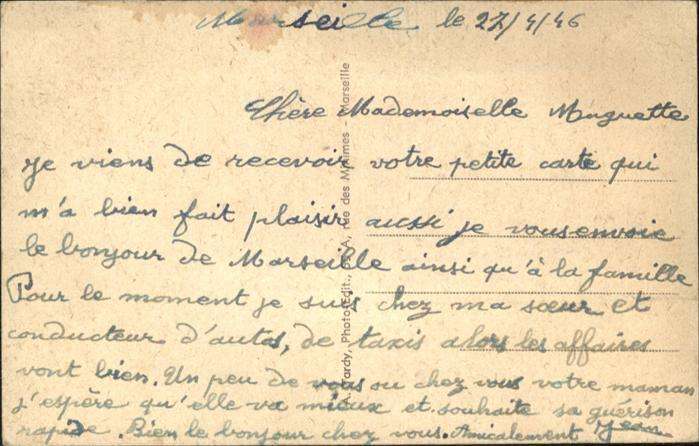 Marseille le 27/4/46
Chère Mademoiselle Muguette
je viens de recevoir votre petite carte qui
m'a bien fait plaisir aussi je vous envoie
le bonjour de Marseille ainsi qu'à la famille
Pour le moment je suis chez ma sœur et
conducteur d'autos, de taxis alors les affaires
vont bien. Un peu de vous ou chez vous votre maman
j'espère qu'elle va mieux et souhaite sa guérison
rapide. Bien le bonjour chez vous. Amicalement Jean
A. Tardy, Photo-Edit., A, rue des Minimes - Marseille